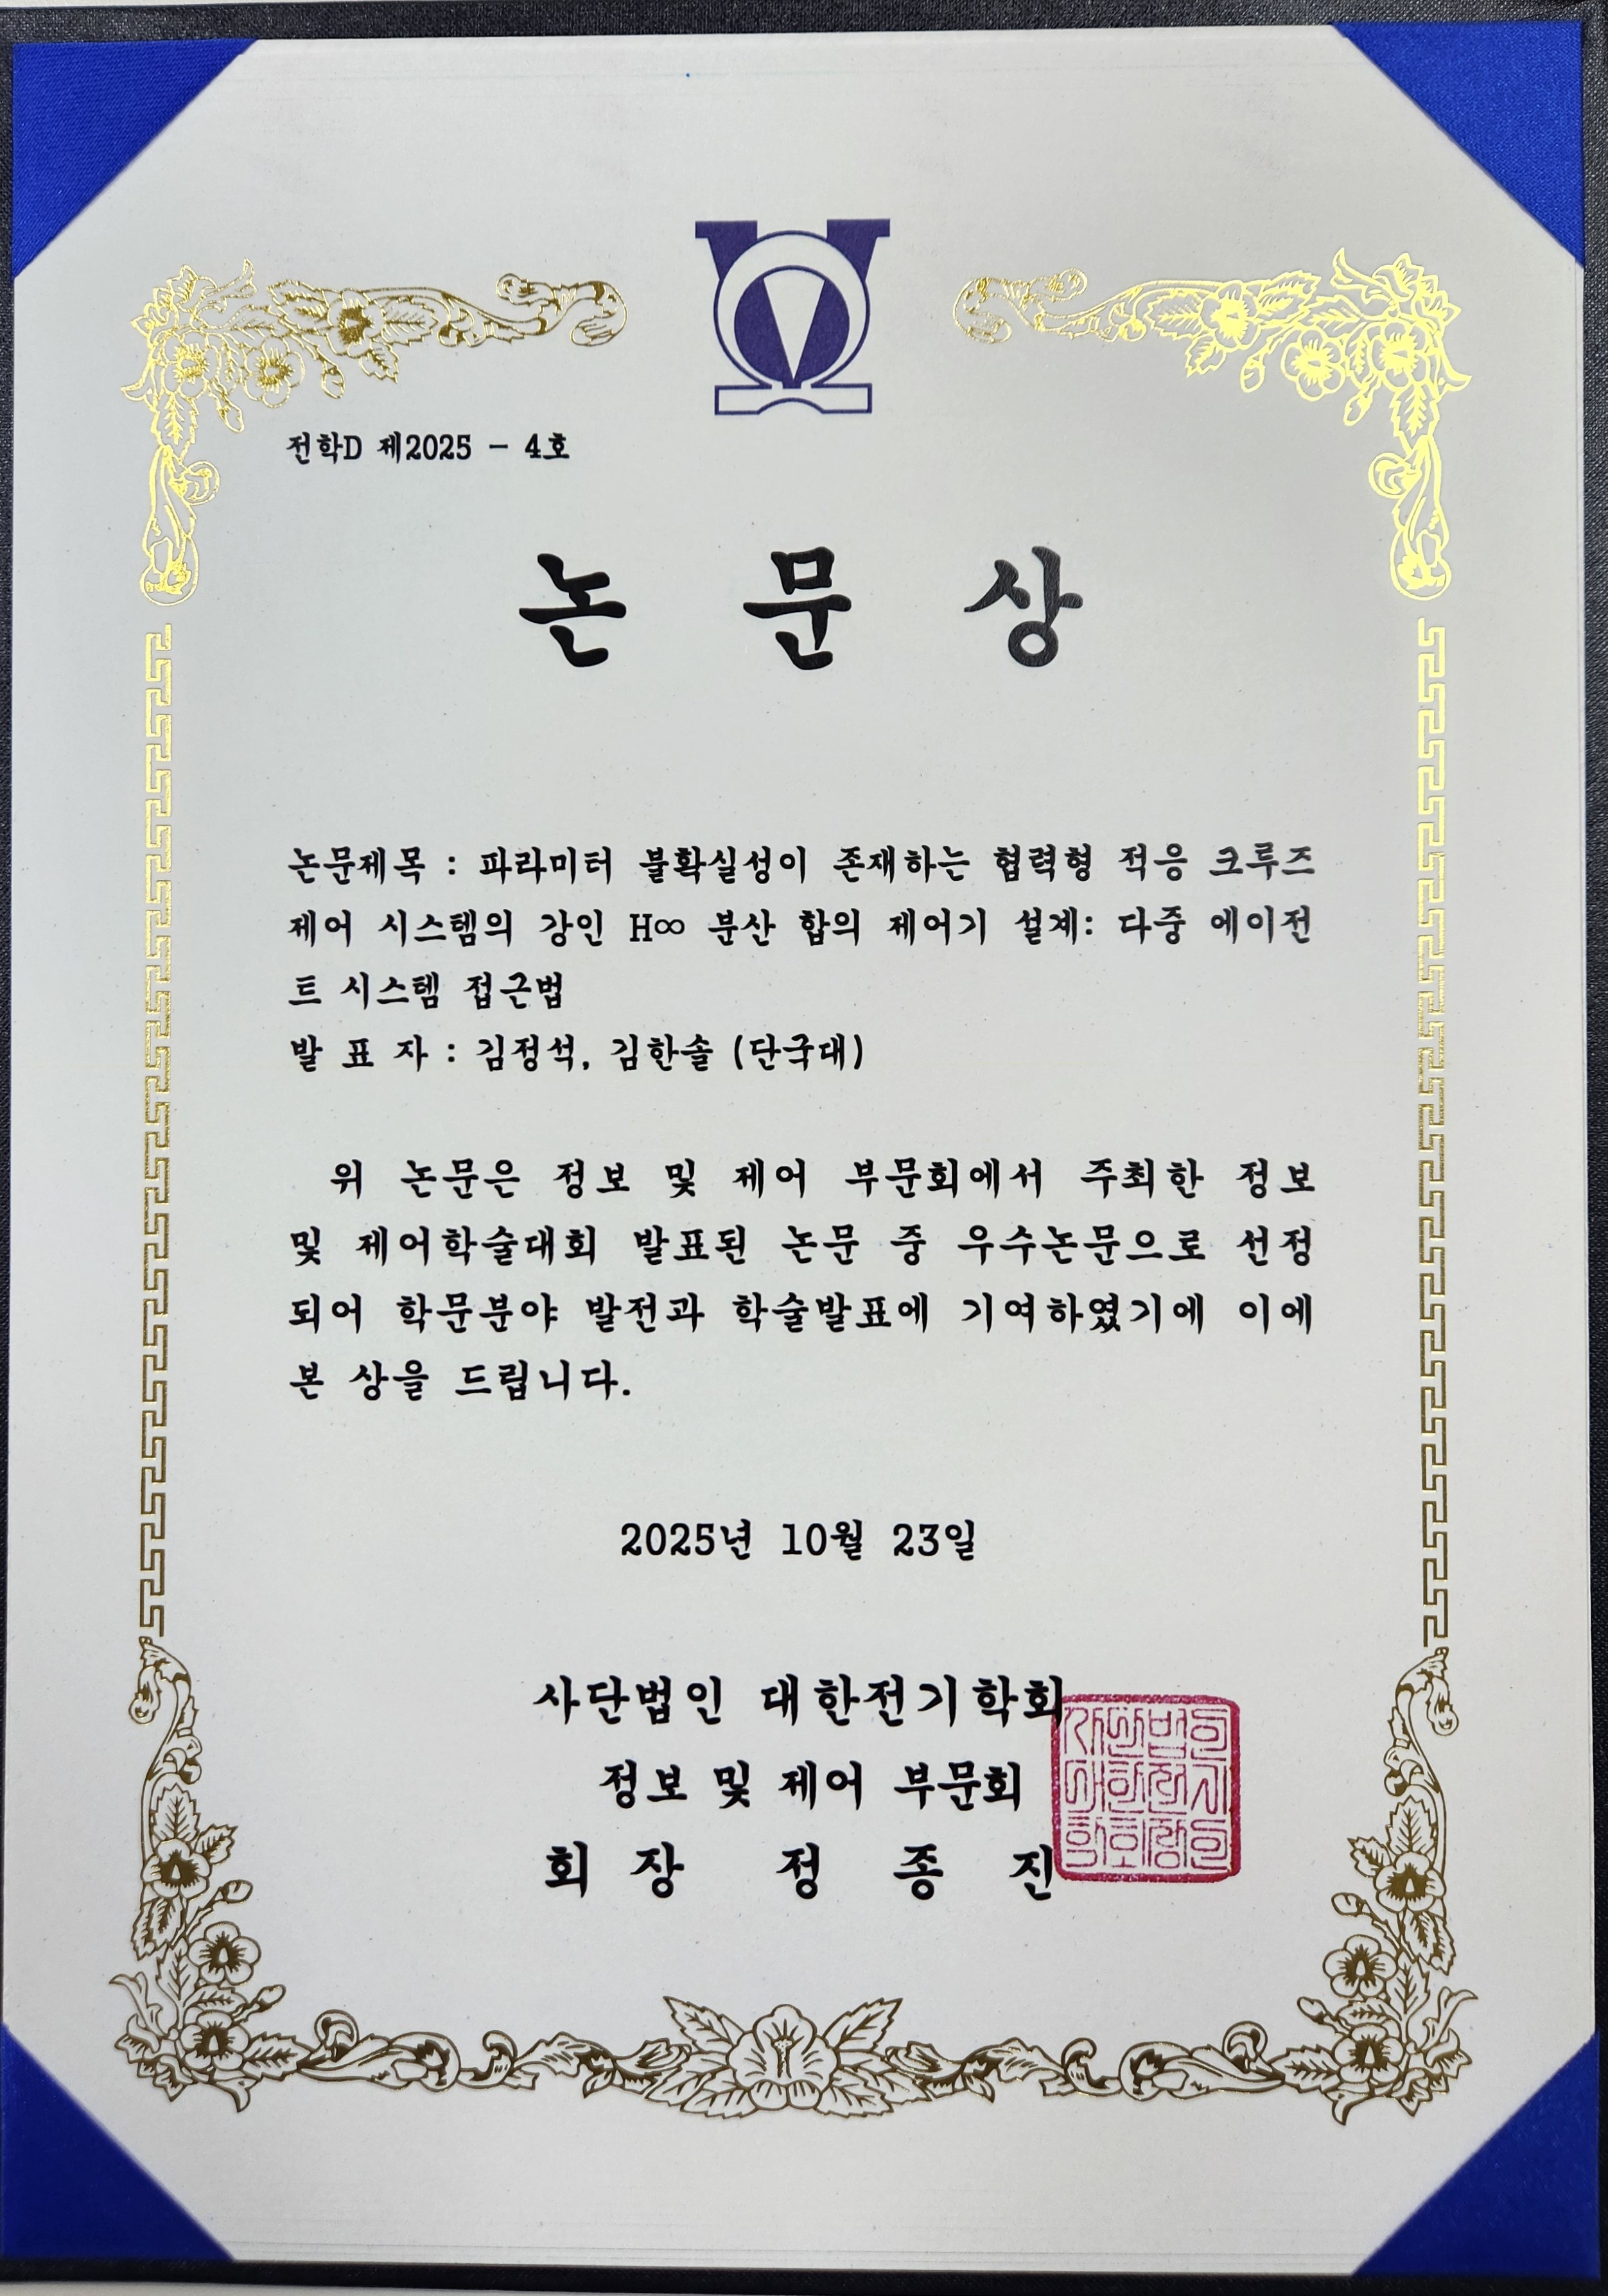 전학D 제2025 - 4호
논 문 상
논문제목 : 파라미터 불확실성이 존재하는 협력형 적응 크루즈
제어 시스템의 강인 H∞ 분산 합의 제어기 설계: 다중 에이전
트 시스템 접근법
발 표 자 : 김정석, 김한솔 (단국대)
위 논문은 정보 및 제어 부문회에서 주최한 정보
및 제어학술대회 발표된 논문 중 우수논문으로 선정
되어 학문분야 발전과 학술발표에 기여하였기에 이에
본 상을 드립니다.
2025년 10월 23일
사단법인 대한전기학회
정보 및 제어 부문회
회 장 정 종 진